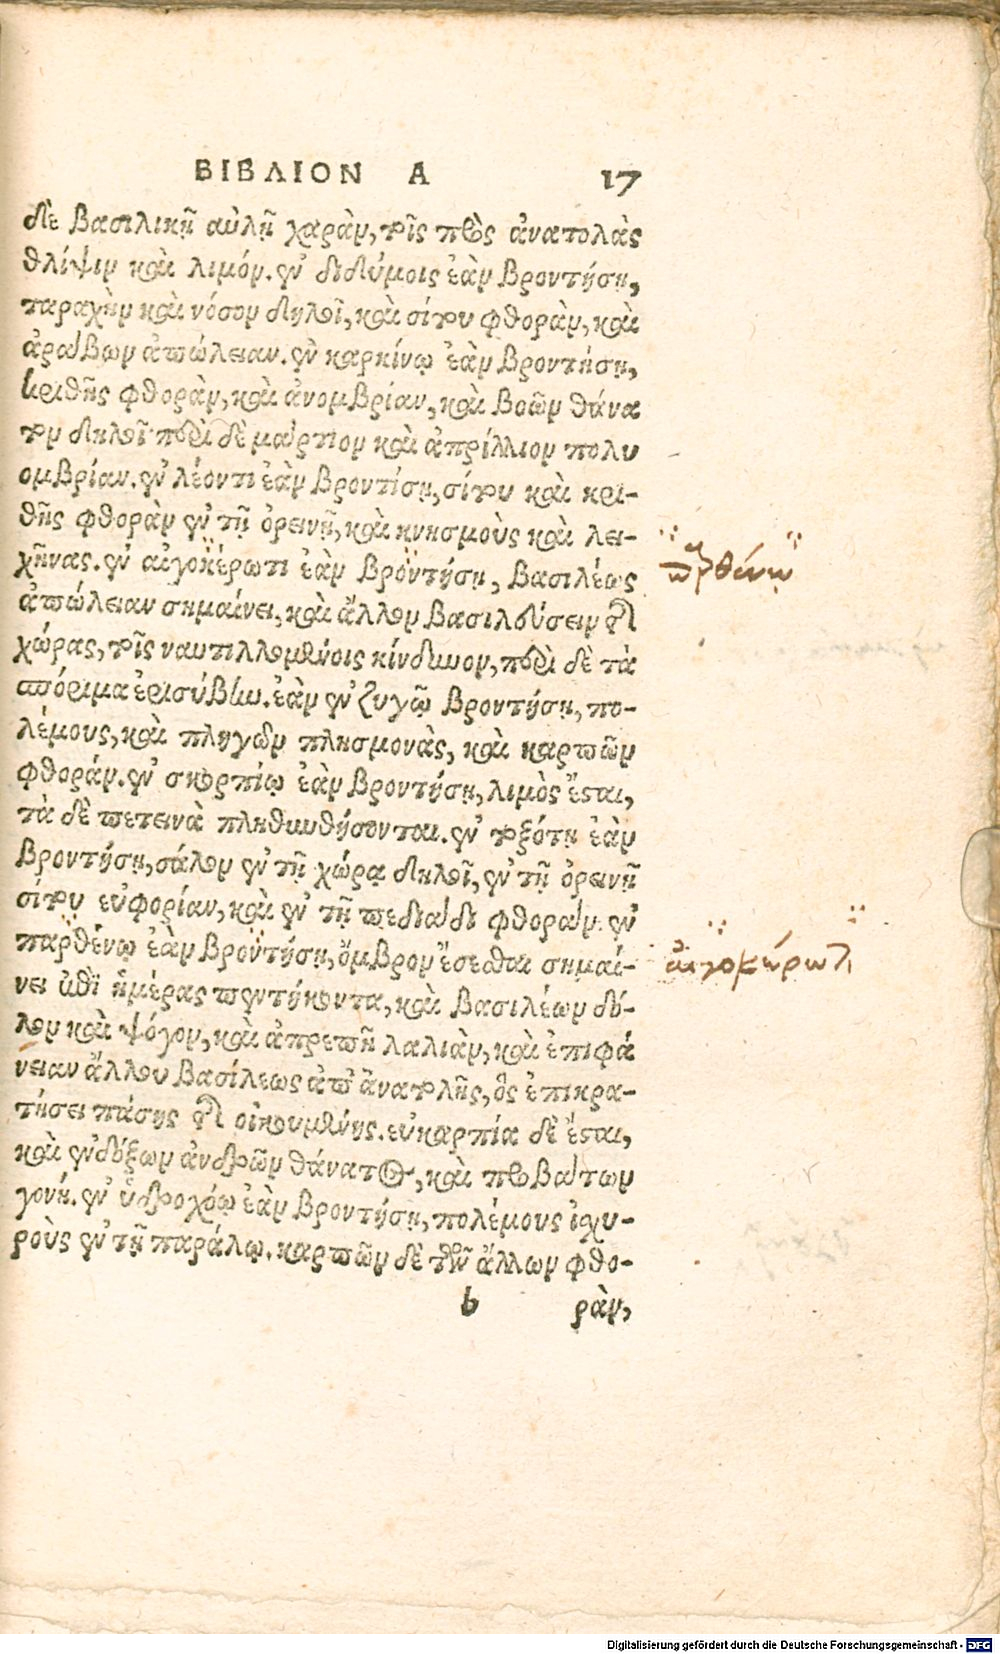 ΒΙΒΛΙΟΝ Α 17
δὲ βασιλικῇ αὐλῇ χαρὰν, τοῖς πρὸς ἀνατολὰς
θλίψιν καὶ λιμόν. ἐν διδύμοις ἐὰν βροντήσῃ,
ταραχὴν καὶ νόσον δηλοῖ, καὶ σίτου φθορὰν, καὶ
ἀράβων ἀπώλειαν. ἐν καρκίνῳ ἐὰν βροντήσῃ,
κριθῆς φθορὰν, καὶ ἀνομβρίαν, καὶ βοῶν θάνα
τον δηλοῖ· περὶ δὲ μάρτιον καὶ ἀπρίλλιον πολυ
ομβρίαν. ἐν λέοντι ἐὰν βροντίσῃ, σίτου καὶ κρι-
θῆς φθορὰν ἐν τῇ ὀρεινῇ, καὶ κνησμοὺς καὶ λει-
χῆνας. ἐν αἰγοκέρωτι ἐὰν βροντήσῃ, βασιλέως
ἀπώλειαν σημαίνει, καὶ ἄλλον βασιλεύσειν τῆς
χώρας, τοῖς ναυτιλλομένοις κίνδυνον, περὶ δὲ τὰ
σπόριμα ἐρισύβην. ἐὰν ἐν ζυγῷ βροντήσῃ, πο-
λέμους, καὶ πληγῶν πλησμονὰς, καὶ καρπῶν
φθοράν. ἐν σκορπίῳ ἐὰν βροντήσῃ, λιμὸς ἔσται,
τὰ δὲ πετεινὰ πληθυνθήσονται. ἐν τοξότῃ ἐὰν
βροντήσῃ, σάλον ἐν τῇ χώρᾳ δηλοῖ, ἐν τῇ ὀρεινῇ
σίτου εὐφορίαν, καὶ ἐν τῇ πεδιάδι φθοράν. ἐν
παρθένῳ ἐὰν βροντήσῃ, ὄμβρον ἔσεσθαι σημαί-
νει ἐπὶ ἡμέρας πεντήκοντα, καὶ βασιλέων δό-
λον καὶ ψόγον, καὶ ἀπρεπῆ λαλιὰν, καὶ ἐπιφά
νειαν ἄλλου βασίλεως ἀπ' ἀνατολῆς, ὃς ἐπικρα-
τήσει πάσης τῆς οἰκουμένης. εὐκαρπία δὲ ἔσται,
καὶ ἐνδόξων ἀνδρῶν θάνατος, καὶ προβάτων
γονή. ἐν ὑδροχόῳ ἐὰν βροντήσῃ, πολέμους ἰσχυ-
ροὺς ἐν τῇ παράλῳ. καρπῶν δὲ τῶν ἄλλων φθο-
b ρὰν,
παρθένῳ
αἰγοκέρωτι
Digitalisierung gefördert durch die Deutsche Forschungsgemeinschaft - DFG